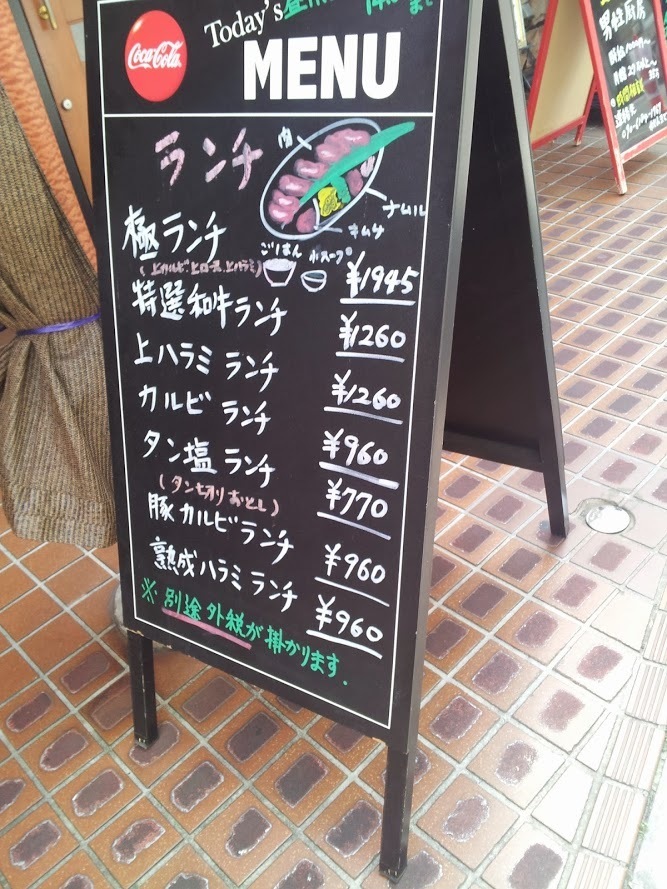 Coca-Cola
Today's
MENU
ランチ
肉
ナムル
キムチ
極ランチ
ごはん
スープ
(上カルビ、上ロース、上ハラミ)
¥1945
特選和牛ランチ
¥1260
上ハラミ ランチ
¥1260
カルビ ランチ
¥960
タン塩 ランチ
¥770
(タン切りおとし)
豚カルビランチ
¥960
熟成ハラミランチ
¥960
※別途外税が掛かります.
男性厨房